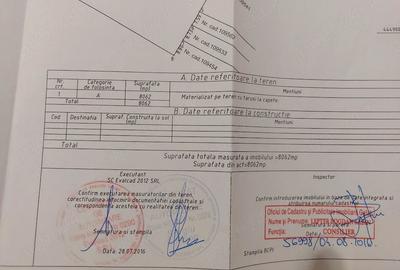 Nr. cad.109503
Nr. cad.109533
Nr. cad.109454
A. Date referitoare la teren
Nr. crt.
Categorie de folosinta
Suprafata (mp)
Mentiuni
1 A 8062 Materializat pe teren cu tarusi la capete.
Total 8062
B. Date referitoare la constructie
Cod Destinatia Supraf. Construita la sol (mp) Mentiuni
Total
Suprafata totala masurata a imobilului =8062mp
Suprafata din act=8062mp
Executant
SC Evalcad 2012 SRL
Confirm executarea masuratorilor din teren,
corectitudinea intocmirii documentatiei cadastrale si
corespondenta acesteia cu realitatea din teren.
Semnatura si stampila
Data: 28.07.2016
Inspector
Confirm introducerea imobilului in baza de date integrata si
atribuirea numarului cadastral
Oficiul de Cadastru si Publicitate Imobiliara
Nume si Prenume:
Functia: CONSILIER
Stampila BCPI